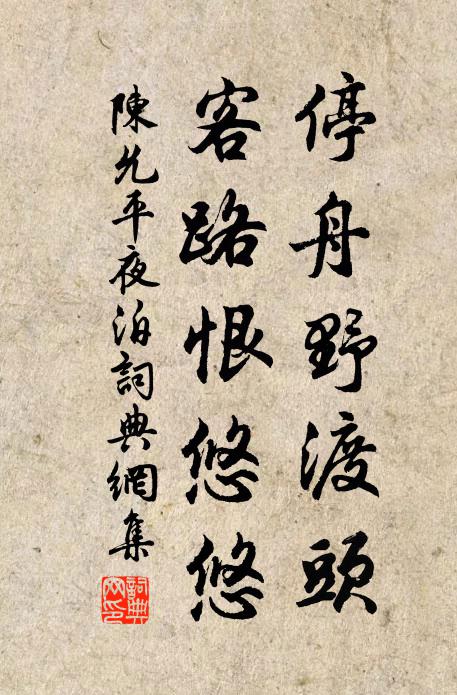 停舟野渡頭
客路恨悠悠
陳允平夜泊詞典網集
詞典網印